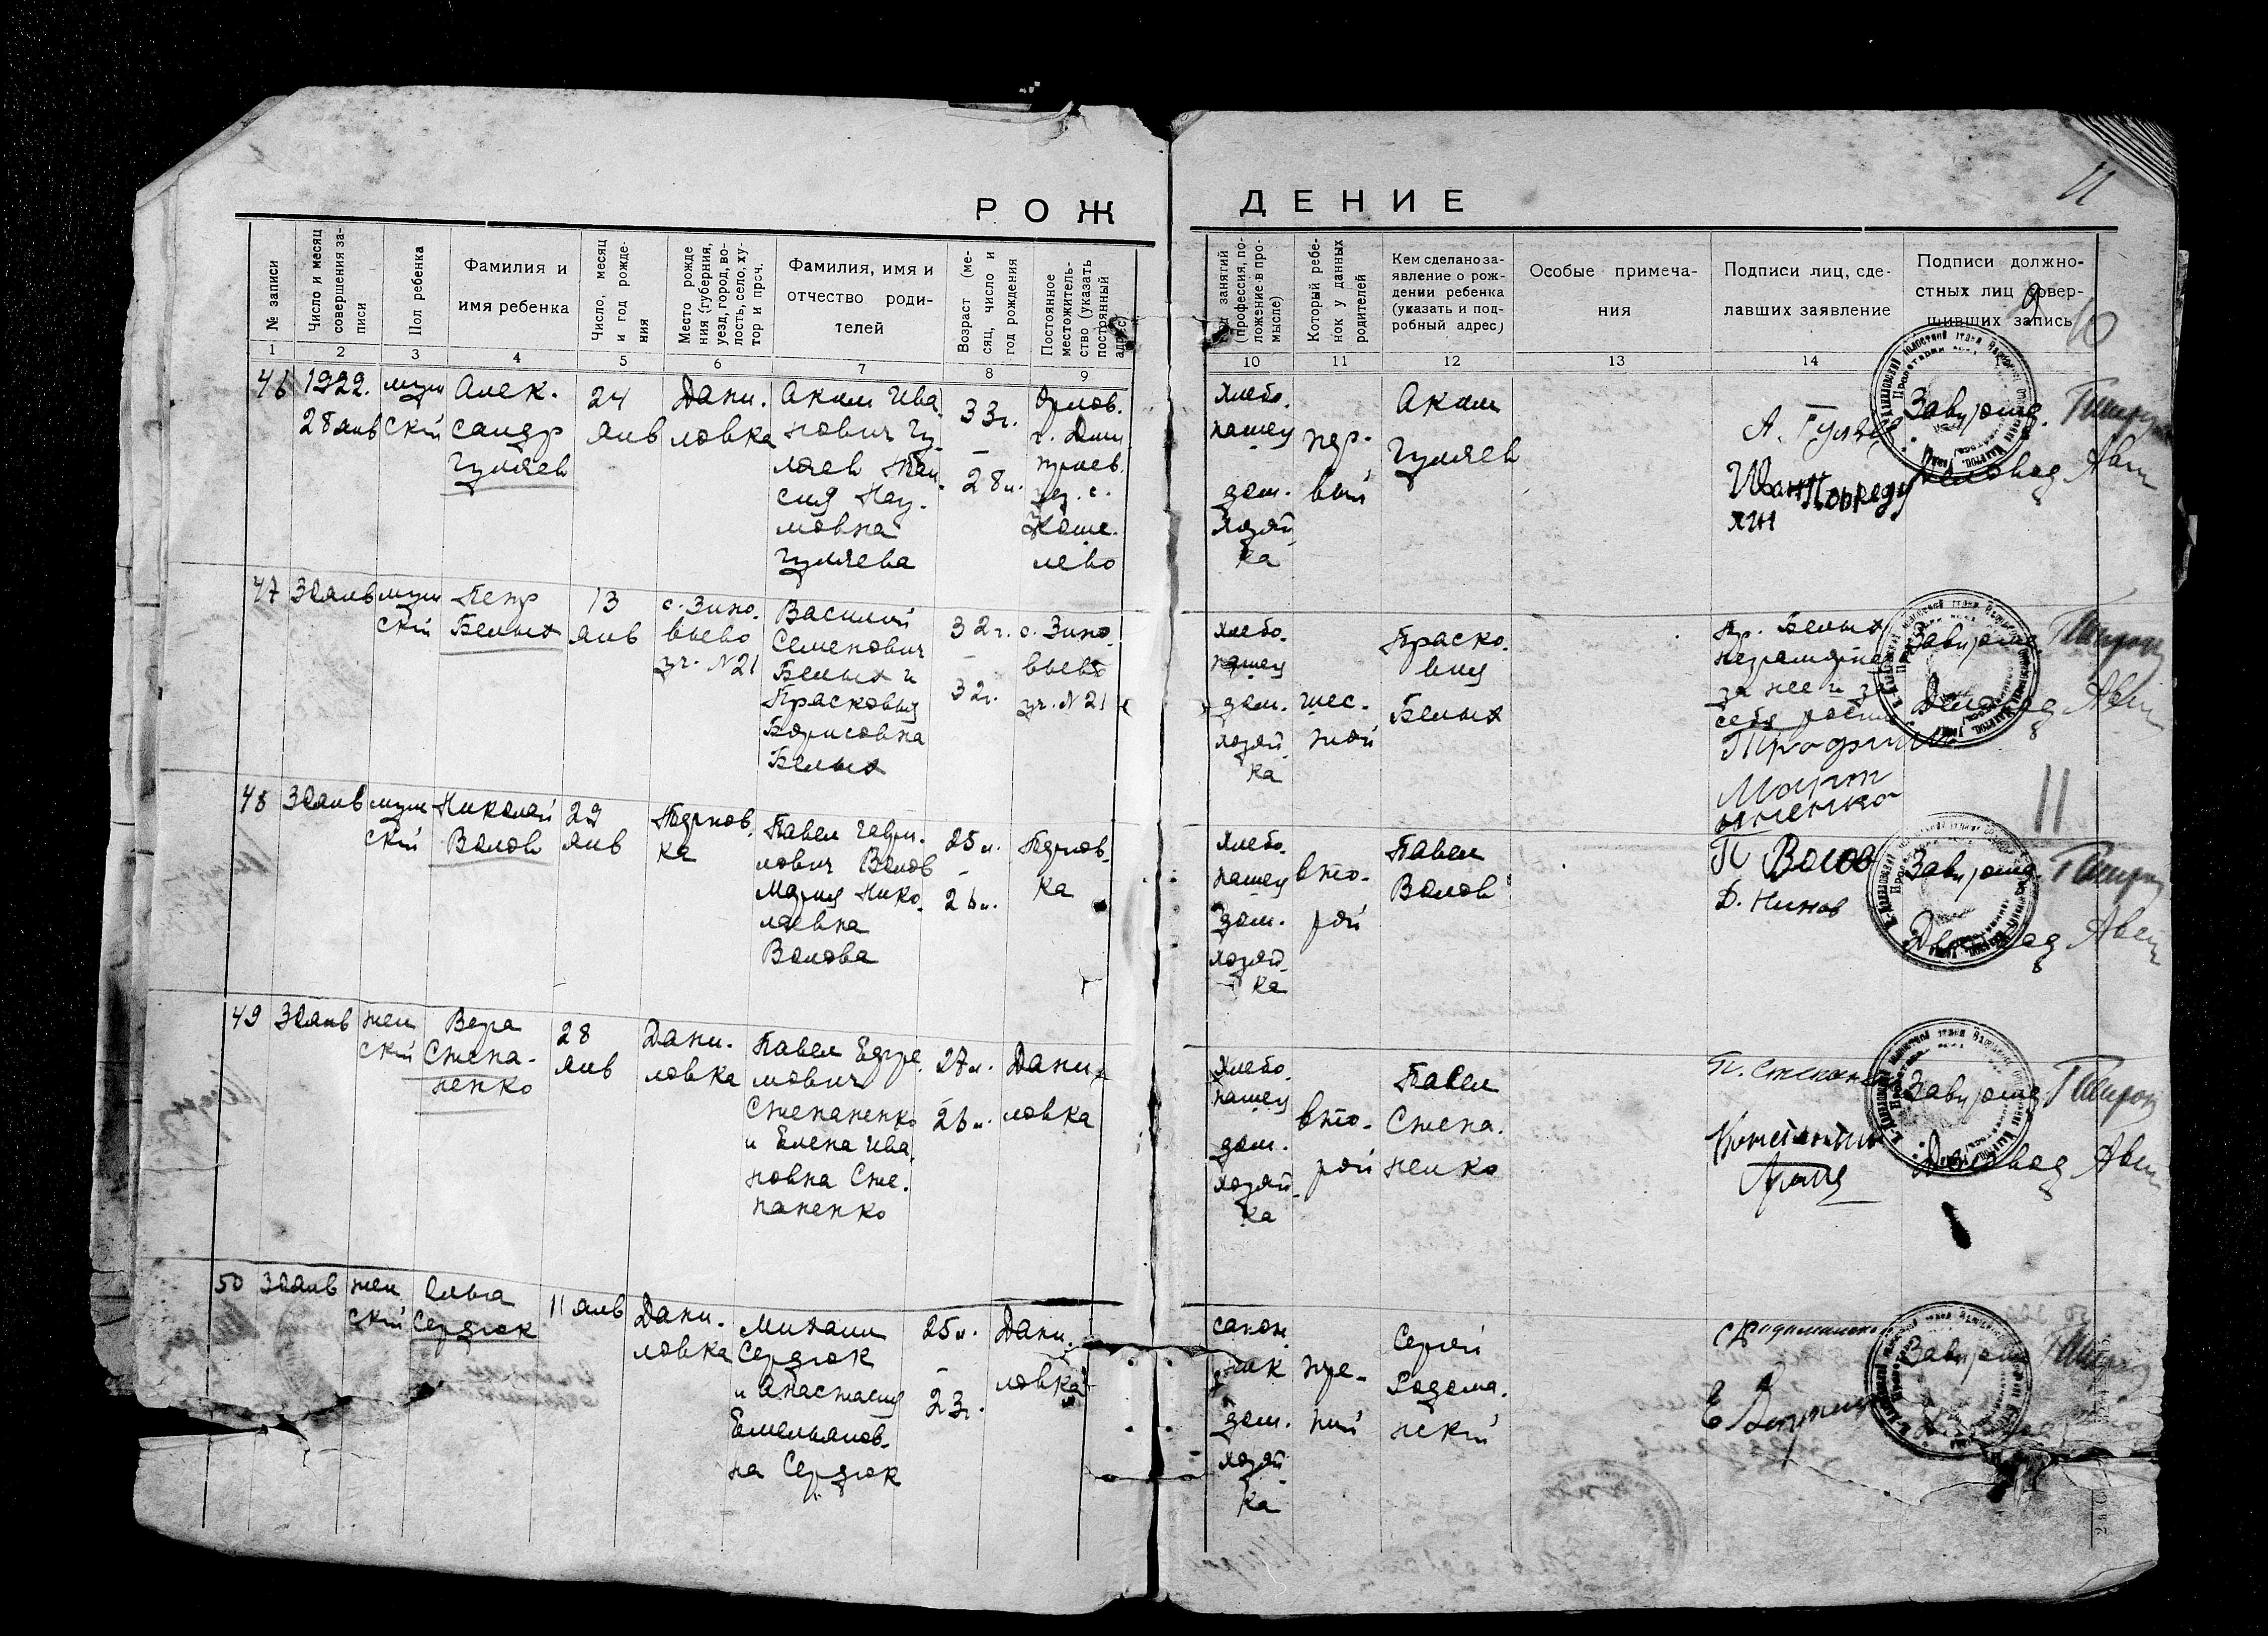 11
РОЖДЕНИЕ
№ записи
Число и месяц совершения записи
Пол ребенка
Фамилия и имя ребенка
Число, месяц и год рождения
Место рождения (губерния, уезд, город, волость, село, хутор и проч.
Фамилия, имя и отчество родителей
Возраст (месяц, число и год рождения
Постоянное местожительство (указать постоянный адрес)
занятий (профессия, положение в промысле)
Который ребенок у данных родителей
Кем сделано заявление о рождении ребенка (указать и подробный адрес)
Особые примечания
Подписи лиц, сделавших заявление
Подписи должностных лиц совершивших запись
9
10
1 2 3 4 5 6 7 8 9 10 11 12 13 14
46
1922.
28 янв
муж
скій
Алек.
сандр
Гуляев
24
янв
Дани.
ловка
Аким Ива.
нович Гу.
ляев
Нау.
мовна
Гуляева
33 г.
28 л.
Орлов.
г. Дми
триев.
уез. с.
Коше.
лево
хлебо.
пашец
дом.
хозяй
ка
пер.
вый
Аким
Гуляев
А. Гуляев
Иван
Завуюш.
Деловод
47
30 янв
муж
скій
Петр
Белых
13
янв
с. Зино.
вьево
уч. N 21
Василий
Семенович
Белых и
Прасковья
Борисовна
Белых
32 г.
32 г.
с. Зино.
вьево
уч. N 21
хлебо.
пашец
дом.
хозяй
ка
шес.
той
Праско.
вья
Белых
Пр. Белых
за нее и за
себя
Трофим
Март
Деловод
48
30 янв
муж
скій
Николай
Волов
29
янв
ка
Павел Гаври.
лович Волов
Мария Нико.
лаевна
Волова
25 л.
26 л.
ка
хлебо.
пашец
дом.
хозяй.
ка
вто.
рой
Павел
Волов
П Волов
Д. Нинов
Деловод
11
49
30 янв
жен
скій
Вера
Степа.
ненко
28
янв
Дани.
ловка
Павел Ефре.
мович
Степаненко
и Елена Ива.
новна Сте.
паненко
27 л.
26 л.
Дани.
ловка
хлебо.
пашец
дом.
хозяй.
ка
вто.
рой
Павел
Степа.
ненко
П. Степаненко
Константин
Деловод
50
30 янв
жен
скій
Ольга
Сердюк
11 янв
Дани.
ловка
Михаил
Сердюк
и Анастасия
Емельянов.
на Сердюк
25 л.
23 г.
Дани.
ловка
сапож
ник
дом.
хозяй.
ка
тре.
тий
Сергей
Радома.
нскій